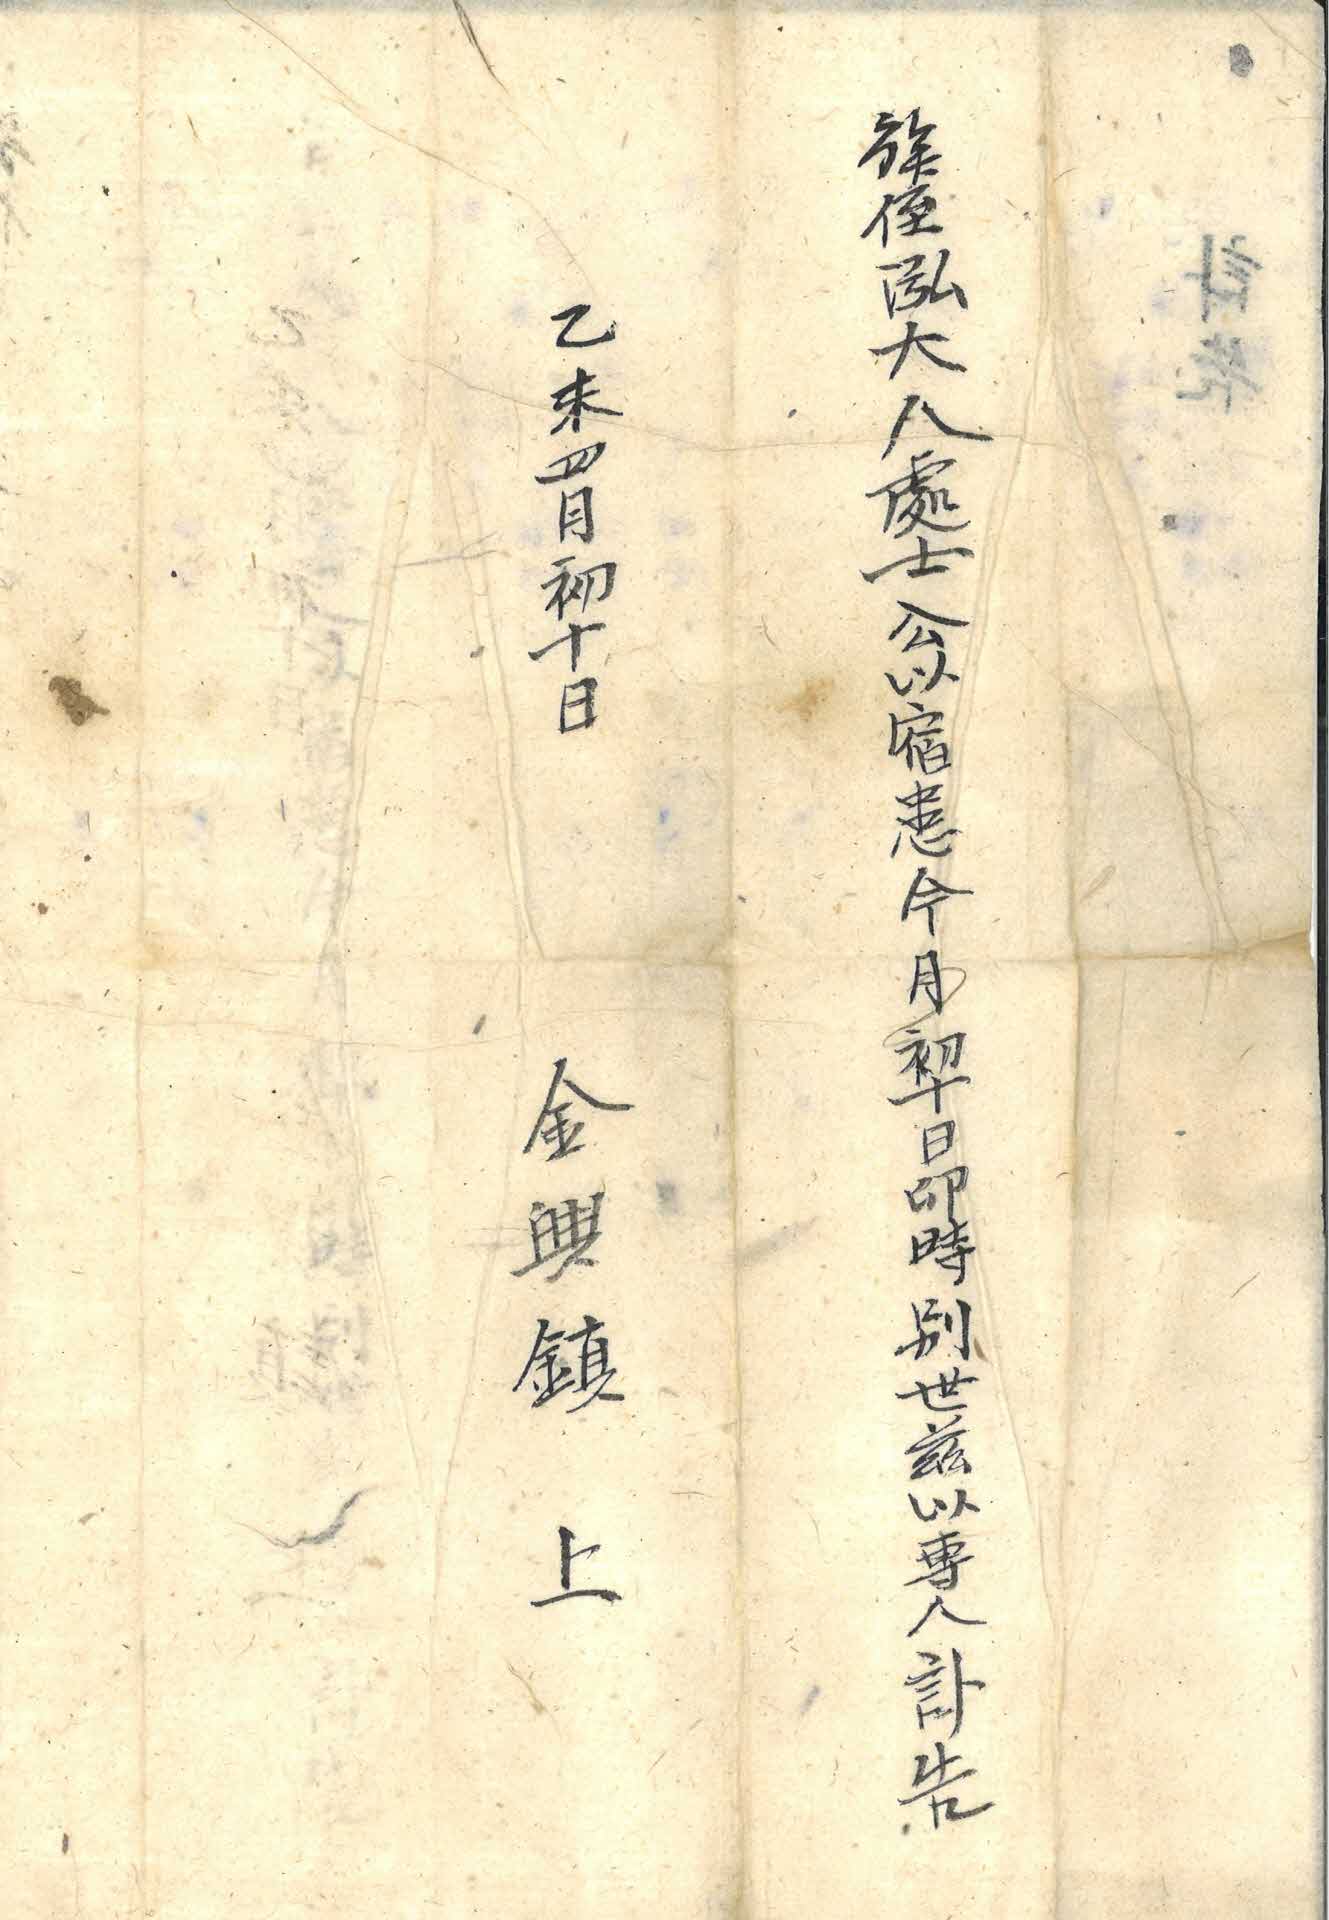 訃告
族侄泓大人處士公以宿患今月初十日卯時別世茲以專人訃告
乙未四月初十日
金興鎮 上